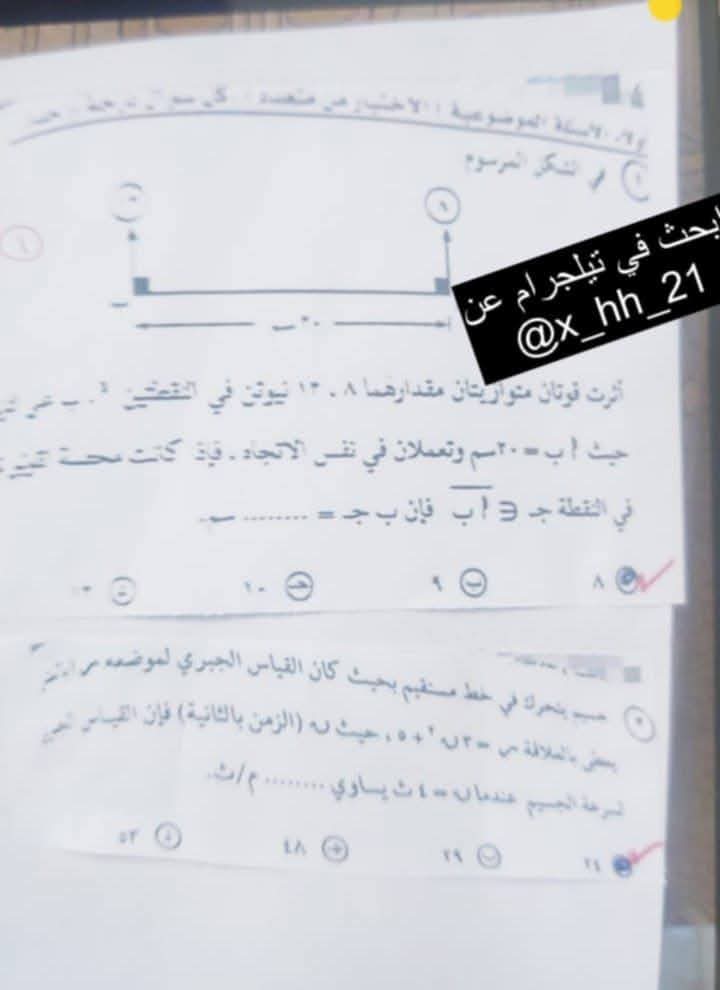 الأسئلة الموضوعية : الاختيار من متعدد : كل سؤال درجة
في الشكل المرسوم
٢٠ سم
ابحث في تيلجرام عن
@x_hh_21
أثرت قوتان متوازيتان مقدارهما ٨ ، ١٢ نيوتن في النقطتين ٢ ، ب
حيث أ ب = ٢٠سم وتعملان في نفس الاتجاه ، فإذا كانت محصلة
في النقطة جـ ∈ أ ب فإن ب جـ = ........ سم
٨ ب ٩ جـ ١٠
جسيم يتحرك في خط مستقيم بحيث كان القياس الجبري لموضعه
يعطى بالعلاقة س = ٣ن٢ + ٥ ، حيث ن (الزمن بالثانية) فإن القياس
لسرعة الجسيم عندما ن = ٤ ث يساوي ........ م/ث.
٢٤ ب ٢٩ جـ ٤٨ د ٥٣